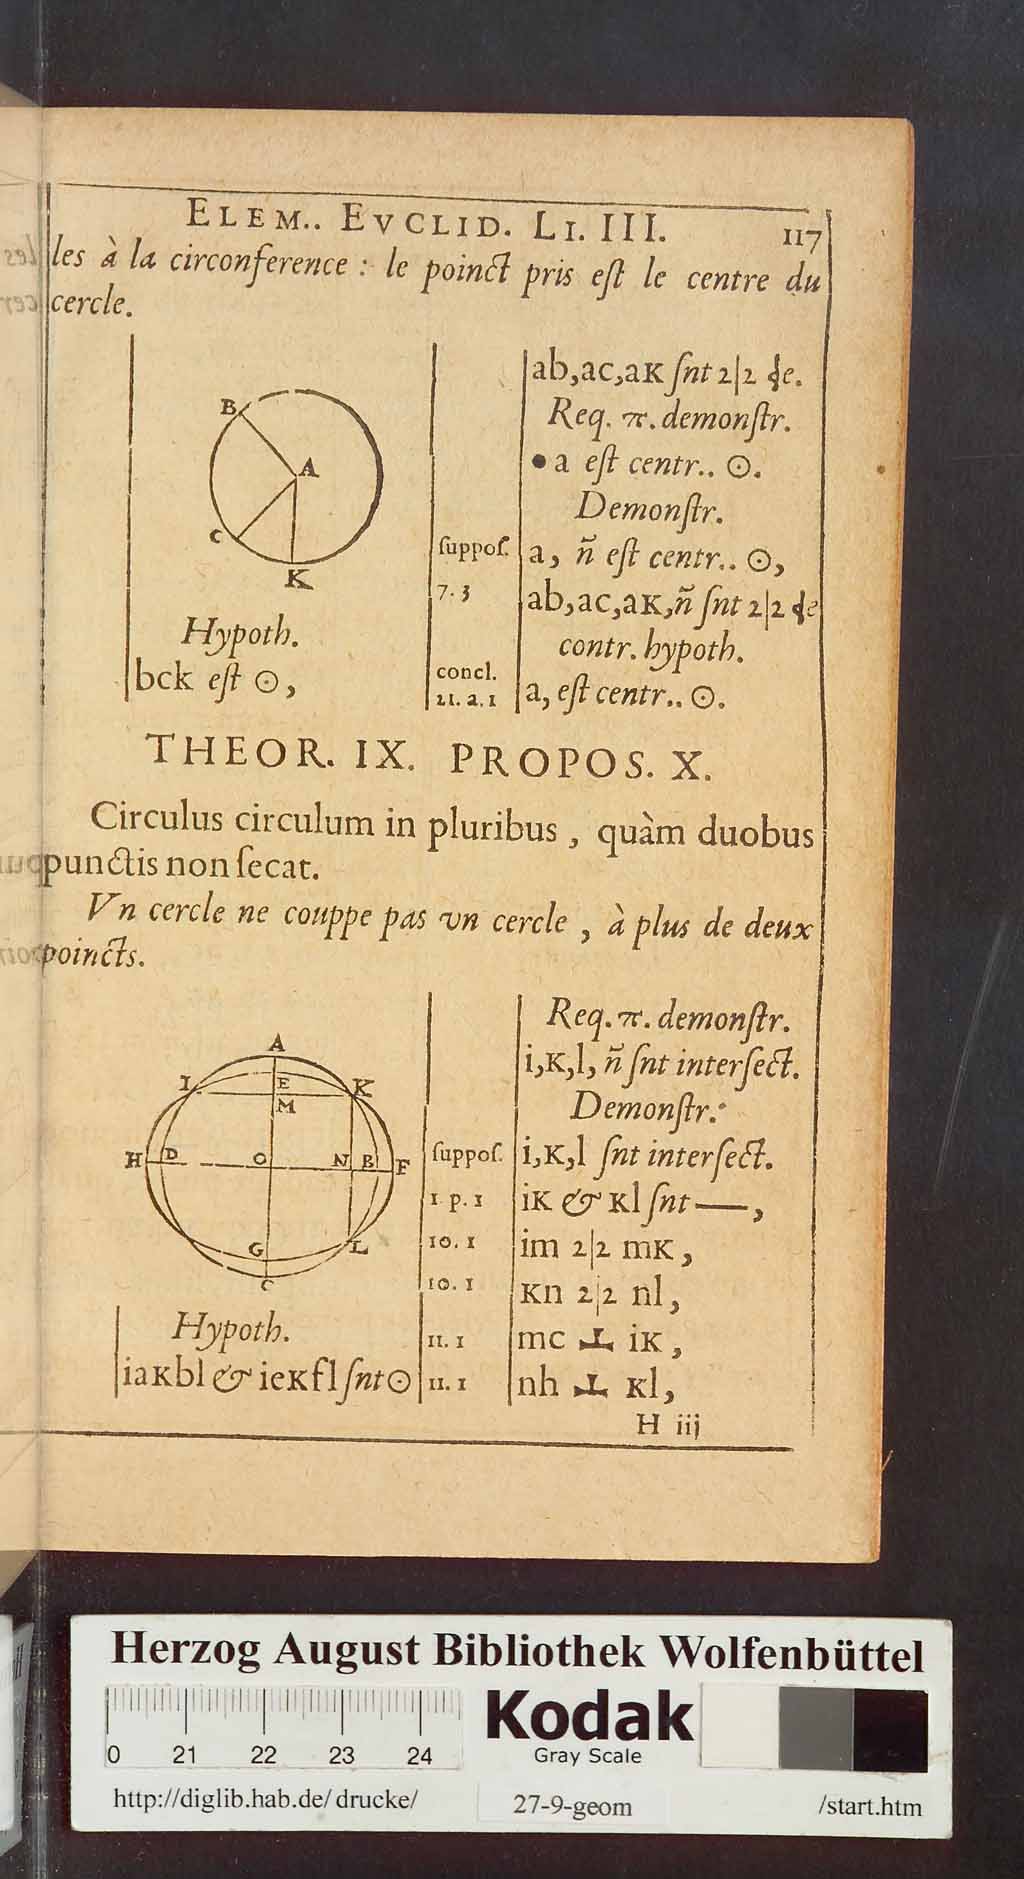 ELEM.. EVCLID. LI. III. 117
les à la circonference : le poinct pris eſt le centre du
cercle.
B
A
C
K
Hypoth.
bck eſt ⊙,
ab,ac,aK ſnt 2|2 de.
Req. π. demonſtr.
• a eſt centr.. ⊙.
Demonſtr.
ſuppoſ. a, ñ eſt centr.. ⊙,
7. 3 ab,ac,aK,ñ ſnt 2|2 de
contr. hypoth.
concl.
21. a. 1 a, eſt centr.. ⊙.
THEOR. IX. PROPOS. X.
Circulus circulum in pluribus, quàm duobus
punctis non ſecat.
Vn cercle ne couppe pas vn cercle, à plus de deux
poincts.
A
I E K
M
H D O N B F
G L
C
Hypoth.
iaKbl & ieKfl ſnt ⊙
Req. π. demonſtr.
i,K,l, ñ ſnt interſect.
Demonſtr.
ſuppoſ. i,K,l ſnt interſect.
1. p. 1 iK & Kl ſnt —,
10. 1 im 2|2 mK,
10. 1 Kn 2|2 nl,
11. 1 mc ⊥ iK,
11. 1 nh ⊥ Kl,
H iij
Herzog August Bibliothek Wolfenbüttel
0 21 22 23 24
Kodak
Gray Scale
http://diglib.hab.de/drucke/ 27-9-geom /start.htm